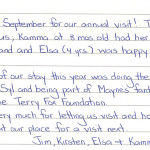 September for our annual visit! T
us; Kamma at 8 mos old had her
and and Elsa (4 yrs) was happy
of our stay this year was doing the
Syl and being part of Mayne's fant
he Terry Fox Foundation.
ery much for letting us visit and ho
at our place for a visit next
Jim, Kirsten, Elsa + Kamm